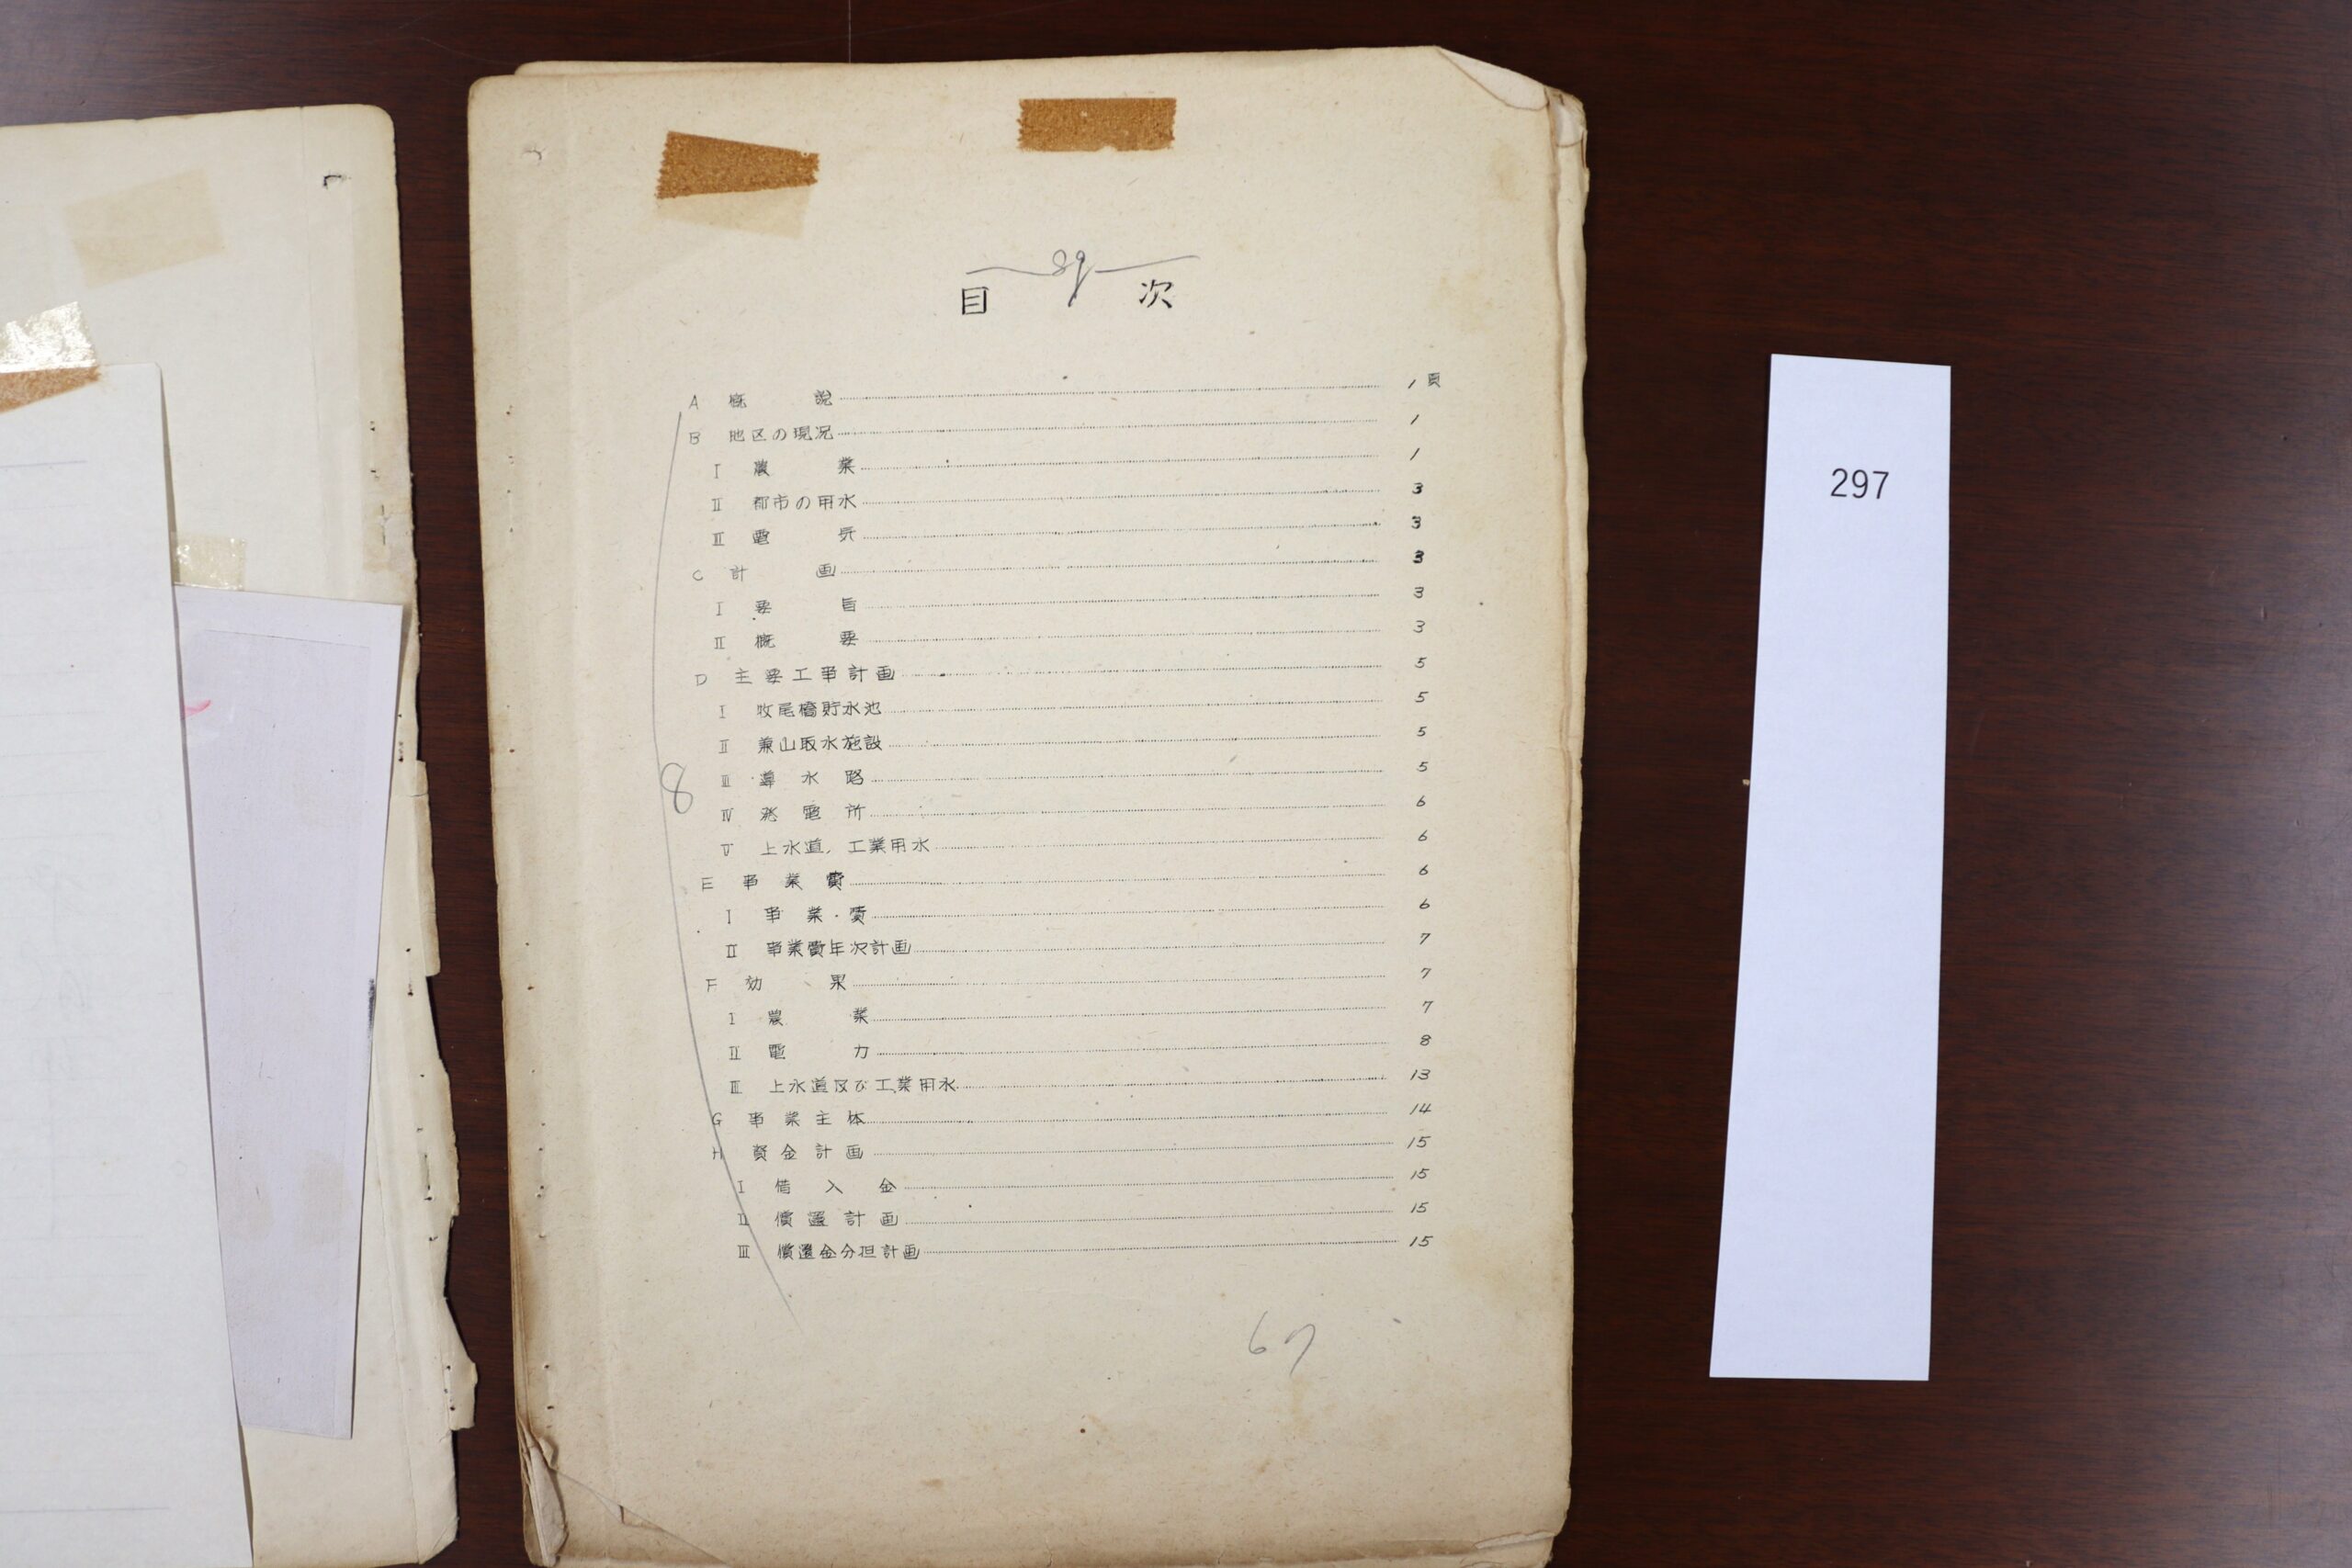 89
目 次
A 概 説 1頁
B 地区の現況 1
I 農 業 1
II 都市の用水 3
II 電 気 3
C 計 画 3
I 要 旨 3
II 概 要 3
D 主要工事計画 5
I 牧尾橋貯水池 5
II 兼山取水施設 5
III 導水路 5
IV 発電所 6
V 上水道、工業用水 6
E 事業費 6
I 事業・費 6
II 事業費年次計画 7
F 効 果 7
I 農 業 7
II 電 力 8
III 上水道及び工業用水 13
G 事業主体 14
H 資金計画 15
I 借入金 15
II 償還計画 15
III 償還金分担計画 15
8
67
297